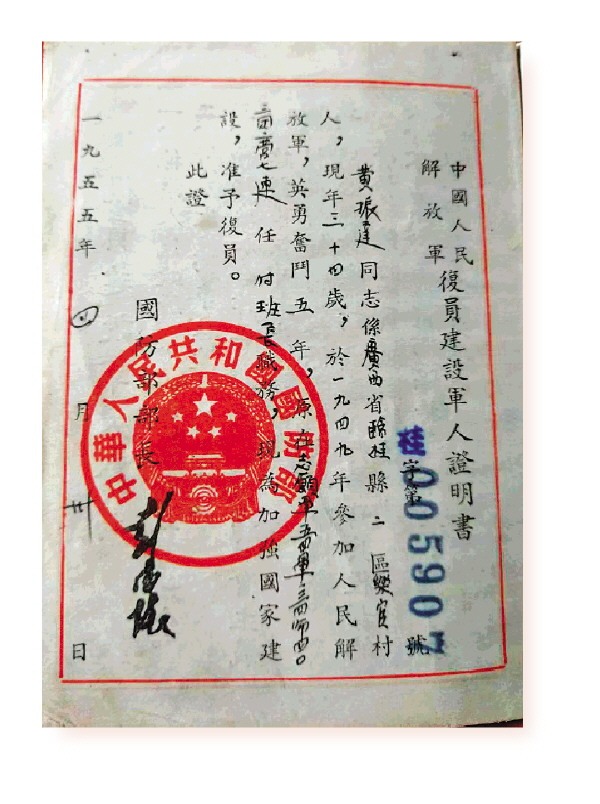 中國人民
解放軍
復員建設軍人證明書
桂字第005907號
黄振達同志係廣西省臨桂縣二區樂官村
人，現年三十四歲，於一九四九年參加人民解
放軍，英勇奮鬥五年，原在志願軍
七連任付班長職務，現為加強國家建
設，准予復員。
此證
國防部部長
彭德懷
一九五五年四月卅日
中華人民共和國國防部